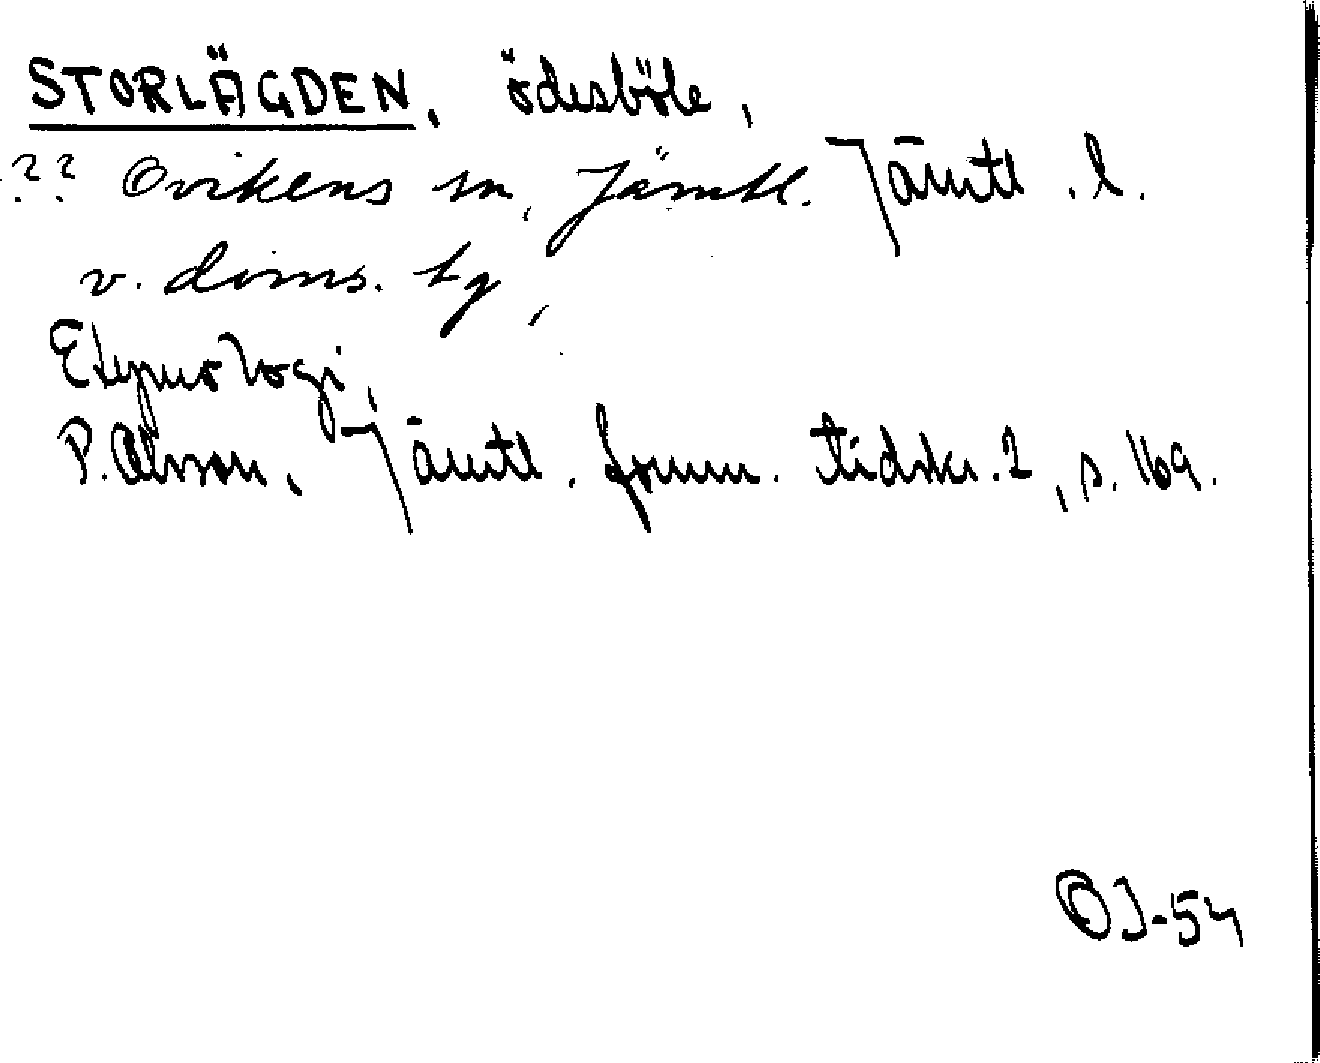 STORLÄGDEN, ödesböle,
?? Ovikens sn, Jämtl. Jämtl. l.
v. doms. tg,
Etymologi,
P. Olsson, Jämtl. fornm. tidskr. 2, s. 169.
OJ-54